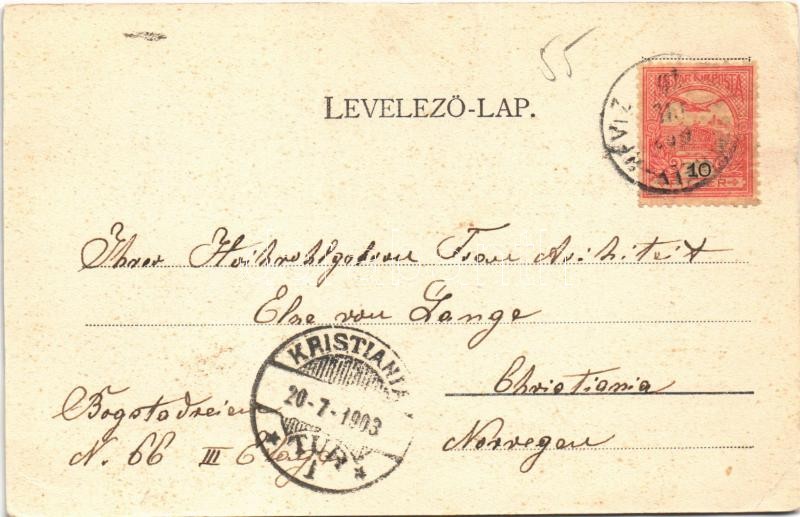 55
LEVELEZŐ-LAP.
MAGYAR KIR. POSTA
10
HÉVIZ
Ihrer Hochwohlgeboren Frau Architect
Else von Lange
Christiania
Norwegen
Bogstadveien
N. 66 III Etage
KRISTIANIA
20-7-1903
TUR
1